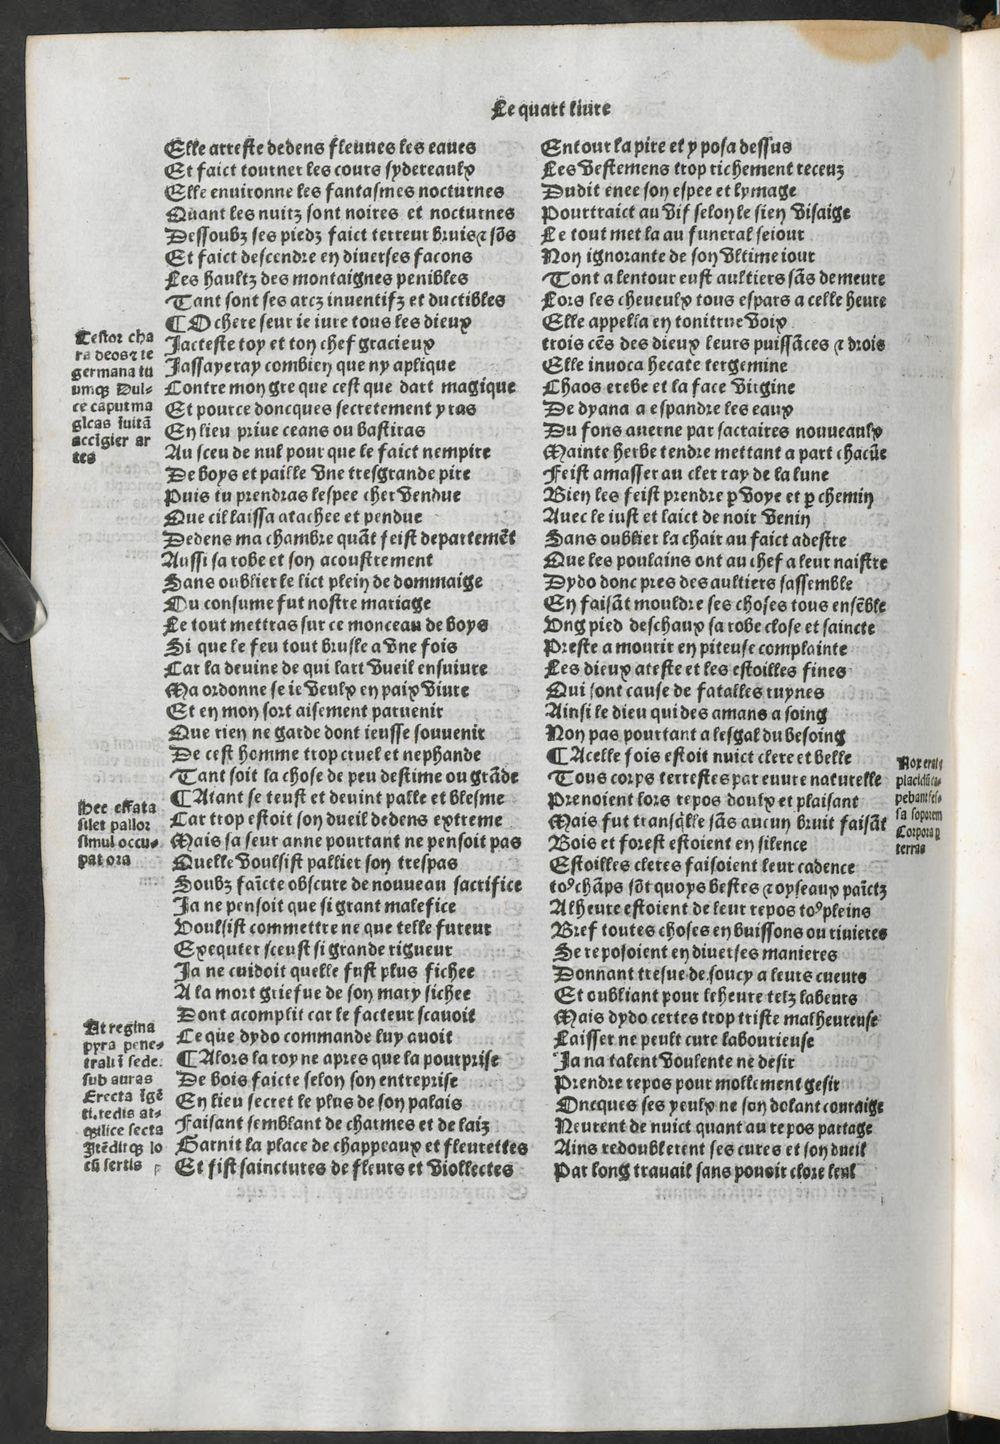 Le quart liure
Elle arreste dedens fleuues les eaues
Et faict tourner les cours sydereaulx
Elle enuironne les fantasmes nocturnes
Quant les nuitz sont noires et nocturnes
Dessoubz ses piedz faict terreur bruis ⁊ sõs
Et faict descendre en diuerses facons
Les haultz des montaignes penibles
Tant sont ses arcz inuentifz et ductibles
¶ O chere seur ie iure tous les dieux
Jacteste toy et ton chef gracieux
Jassayeray combien que ny aplique
Contre mon gre que cest que dart magique
Et pource doncques secretement y ras
En lieu priue ceans ou bastiras
Au sceu de nul pour que le faict nempire
De boys et paille vne tresgrande pire
Puis tu prendras lespee cher vendue
Que cil laissa atachee et pendue
Dedens ma chambre quãt feist departemẽt
Aussi sa robe et son acoustrement
Sans oublier le lict plein de dommaige
Ou consume fut nostre mariage
Le tout mettras sur ce monceau de boys
Si que le feu tout brusle a vne fois
Car la deuine de qui lart vueil ensuiure
Ma ordonne se ie veulx en paix viure
Et en mon sort aisement paruenir
Que rien ne garde dont ieusse souuenir
De cest homme trop cruel et nephande
Tant soit la chose de peu destime ou grãde
¶ Atant se teust et deuint palle et blesme
Car trop estoit son dueil dedens extreme
Mais sa seur anne pourtant ne pensoit pas
Quelle voulsist pallier son trespas
Soubz faicte obscure de nouueau sacrifice
Ja ne pensoit que si grant malefice
Voulsist commettre ne que telle fureur
Exequter sceust si grande rigueur
Ja ne cuidoit quelle fust plus fichee
A la mort griefue de son mary sichee
Dont acomplit car le facteur scauoit
Ce que dydo commande luy auoit
¶ Alors la royne apres que la pourprise
De bois faicte selon son entreprise
En lieu secret le plus de son palais
Faisant semblant de charmes et de laiz
Garnit la place de chappeaux et fleurettes
Et fist sainctures de fleurs et viollectes
Testor cha
ra deos ⁊ te
germana tu
umqꝫ Dul-
ce caput ma
gicas īuitã
accigier ar
tes
Hec effata
silet pallor
simul occu-
pat ora
At regina
pyra pene-
trali ī sede.
sub auras
Erecta īgẽ
ti. tedis at-
qꝫ ilice secta
Jtẽditqꝫ lo
cũ sertis
Entour la pire et y posa dessus
Les vestemens trop richement receuz
Dudit enee son espee et lymage
Pourtraict au vif selon le sien visaige
Le tout met la au funeral seiour
Non ignorante de son vltime iour
Tont a lentour eust aultiers sãs demeure
Lors les cheueulx tous espars a celle heure
Elle appella en tonitrue voix
trois cẽs des dieux leurs puissãces ⁊ drois
Elle inuoca hecate tergemine
Chaos erebe et la face virgine
De dyana a espandre les eaux
Du fons auerne par sacraires nouueaulx
Mainte herbe tendre mettant a part chacũe
Feist amasser au cler ray de la lune
Bien les feist prendre ꝑ voye et ꝑ chemin
Auec le iust et laict de noir venin
Sans oublier la chair au faict adestre
Que les poulains ont au chef a leur naistre
Dydo donc pres des aultiers sassemble
En faisãt mouldre ses choses tous ensẽble
Vng pied deschaux sa robe close et saincte
Preste a mourir en piteuse complainte
Les dieux ateste et les estoilles fines
Qui sont cause de fatalles ruynes
Ainsi le dieu qui des amans a soing
Non pas pourtant a lesgal du besoing
¶ Acelle fois estoit nuict clere et belle
Tous corps terrestes par euure naturelle
Prenoient lors repos doulx et plaisant
Mais fut transq̃lle sãs aucun bruit faisãt
Bois et forest estoient en silence
Estoilles cleres faisoient leur cadence
toꝰ chãps sõt quoys bestes ⁊ oyseaux paĩctz
Alheure estoient de leur repos toꝰ pleins
Bref toutes choses en buissons ou riuieres
Se reposoient en diuerses manieres
Donnant tresue de soucy a leurs cueurs
Et oubliant pour leheure telz labeurs
Mais dydo certes trop triste malheureuse
Laisser ne peult cure labourieuse
Ja na talent voulente ne desir
Prendre repos pour mollement gesir
Oncques ses yeulx ne son dolant couraige
Neurent de nuict quant au repos partage
Ains redoublerent ses cures et son dueil
Par long trauail sans pouoir clore leul
Nox erat ⁊
placidũ ca-
pebant fes-
sa soporem
Corpora ꝑ
terras